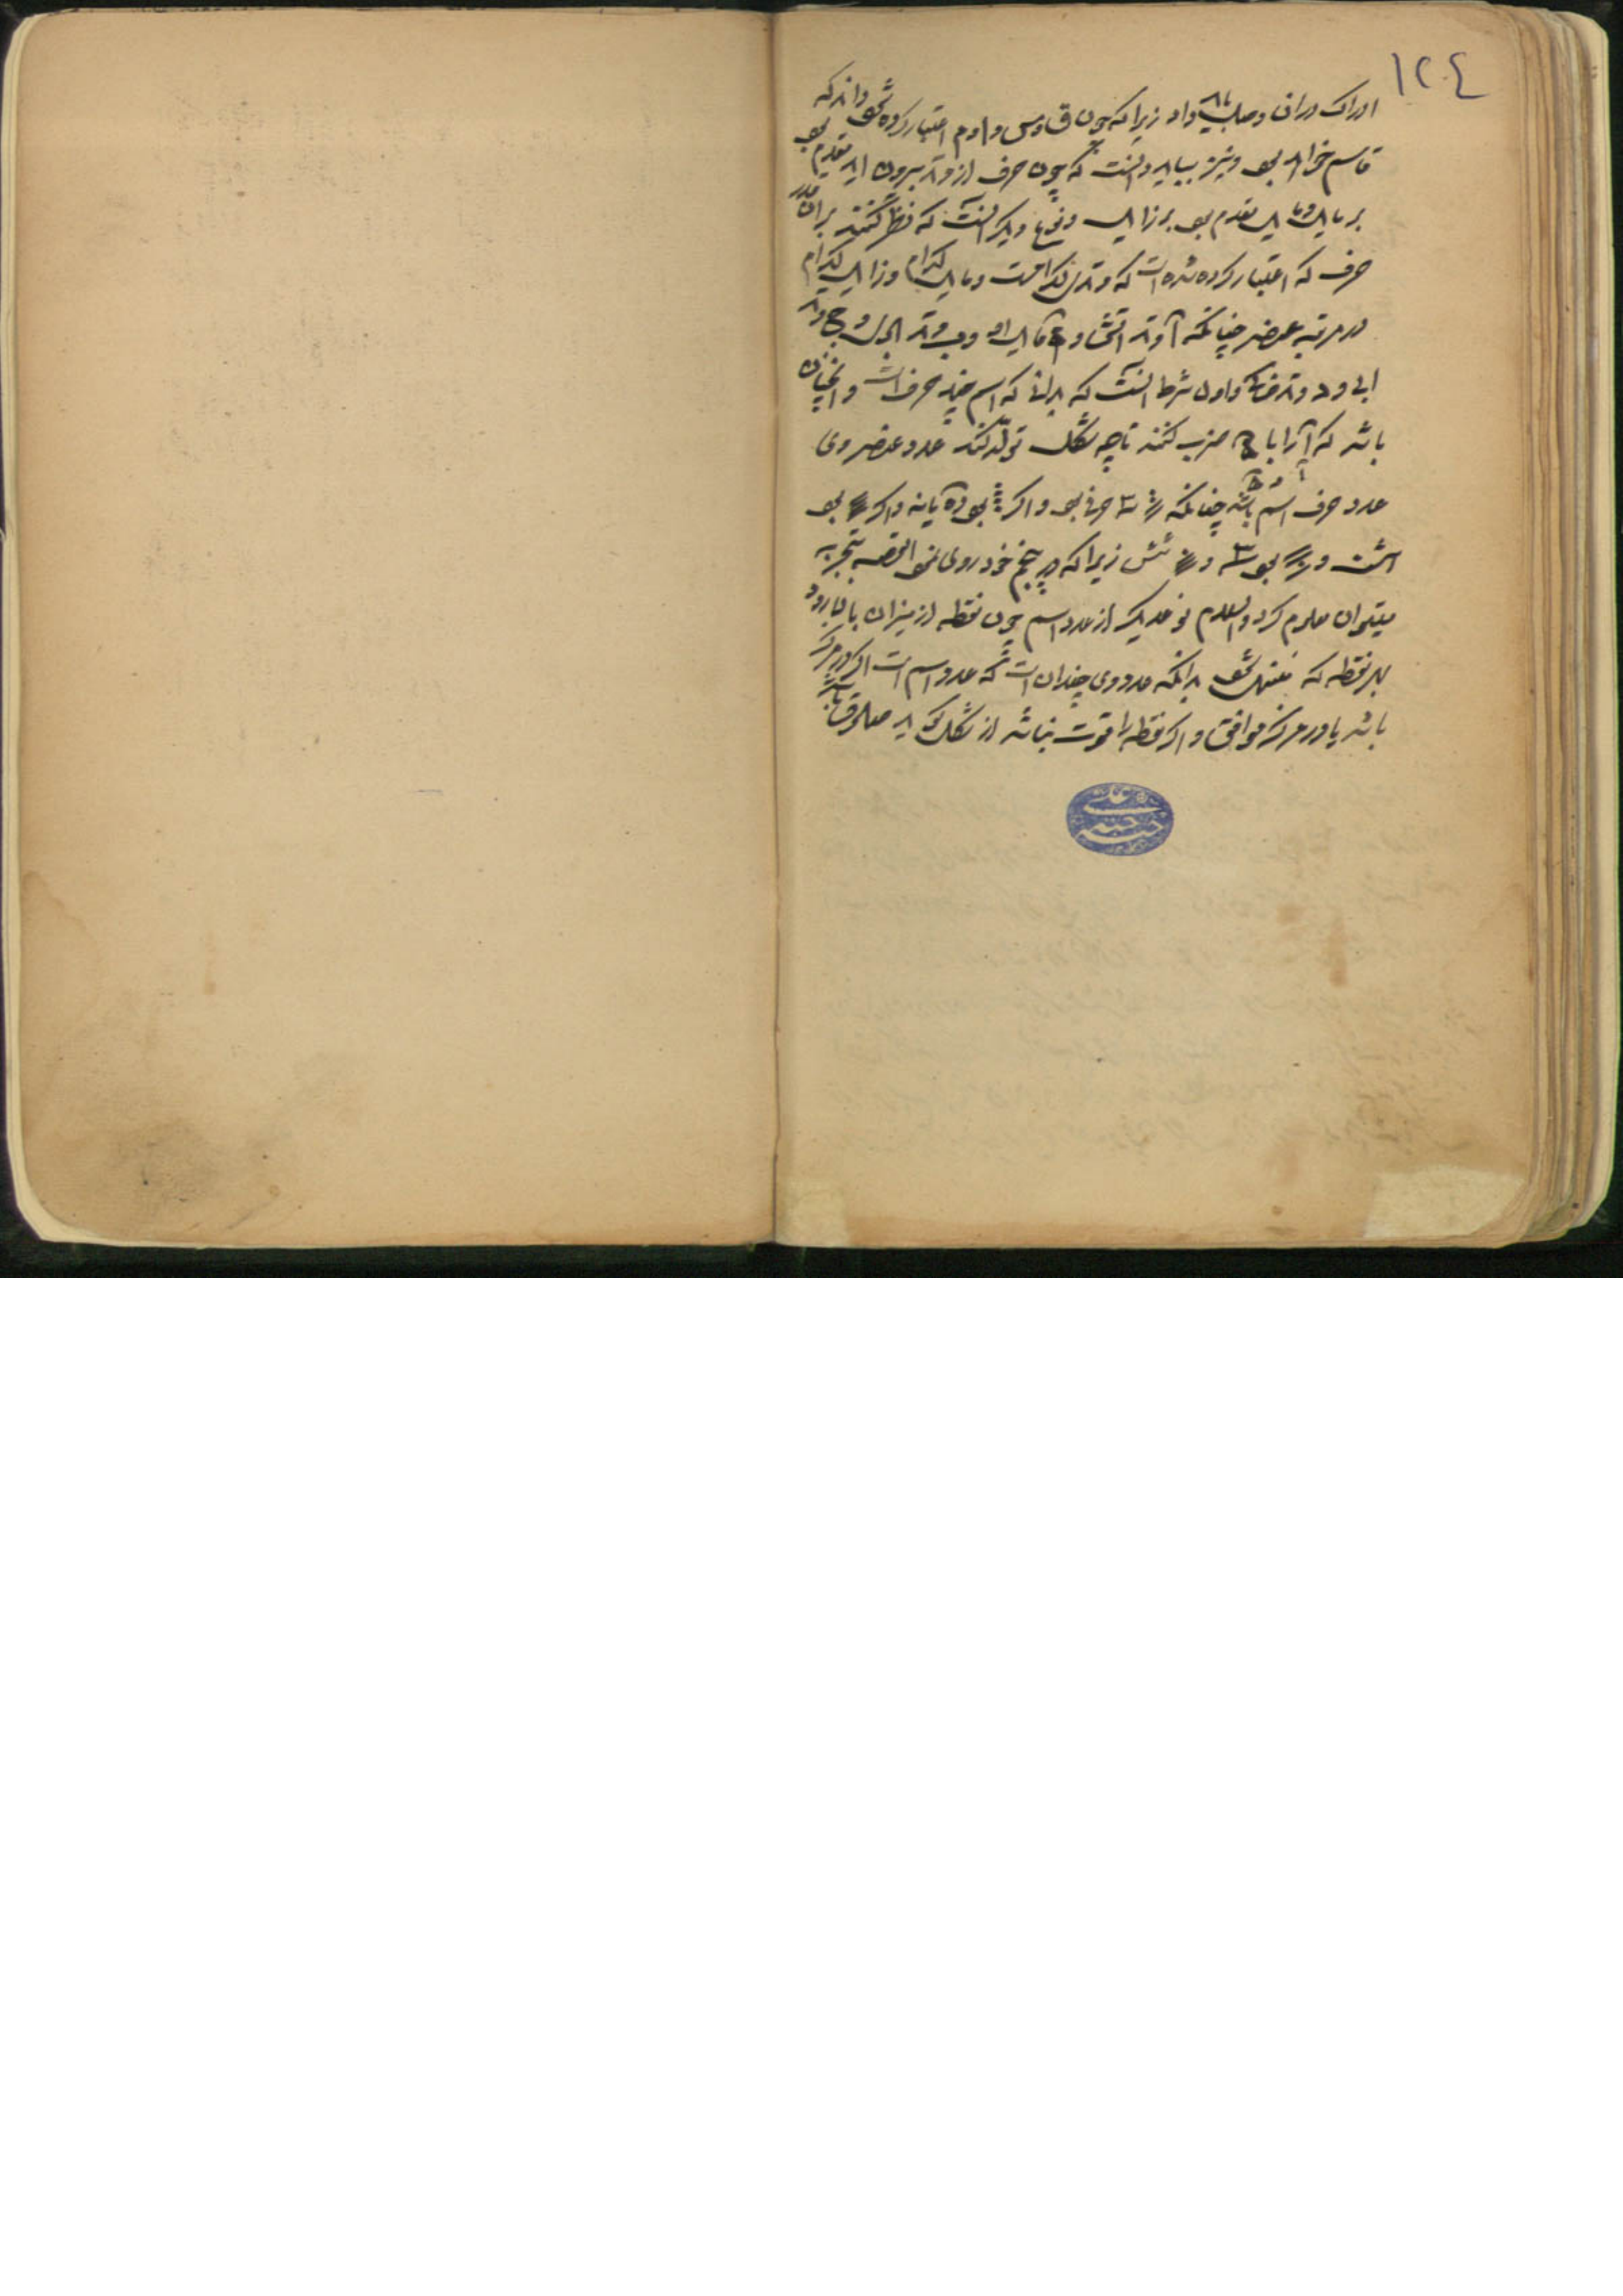 ١٢٤
ادراک در ان و صلب باید داد زیرا که چون ق و س و ا و م اعتبار کرده شود داند که
قاسم خواهد بود و نیز بباید دانست که چون حرف از وتد بیرون اید مقدم بود
بر مایل و مایل مقدم بود بر زایل و نوع دیگر انست که نظر کنند بر ان
حرف که اعتبار کرده شده است که وتد کدامست و مایل کدام و زایل کدام
در مرتبه عنصر چنانکه آ وتد اتشی و مایل او و ب وتد و ج وتد
ابی و د وتد خاکی و اول شرط انست که بدانی که اسم چند حرف است و انچنان
باشد که آنرا با ضرب کنند تا چه شکل تولد کند عدد عنصر وی
عدد حرف اسم باشد چنانکه حرف بود و اکر بود ده یا نه و اکر بود
هشت و بود و شش زیرا که در پنجم خود روی نمود القصه بتجربه
میتوان معلوم کرد والسلام نوع دیگر از عدد اسم چون نقطه از میزان با
بهر نقطه که منتهی شود بدانکه عدد وی چندان است که عدد اسم است اکر در مرکز
باشد یا در مرکز موافق و اکر نقطه را قوت نباشد از شکل کوید صادق باشد